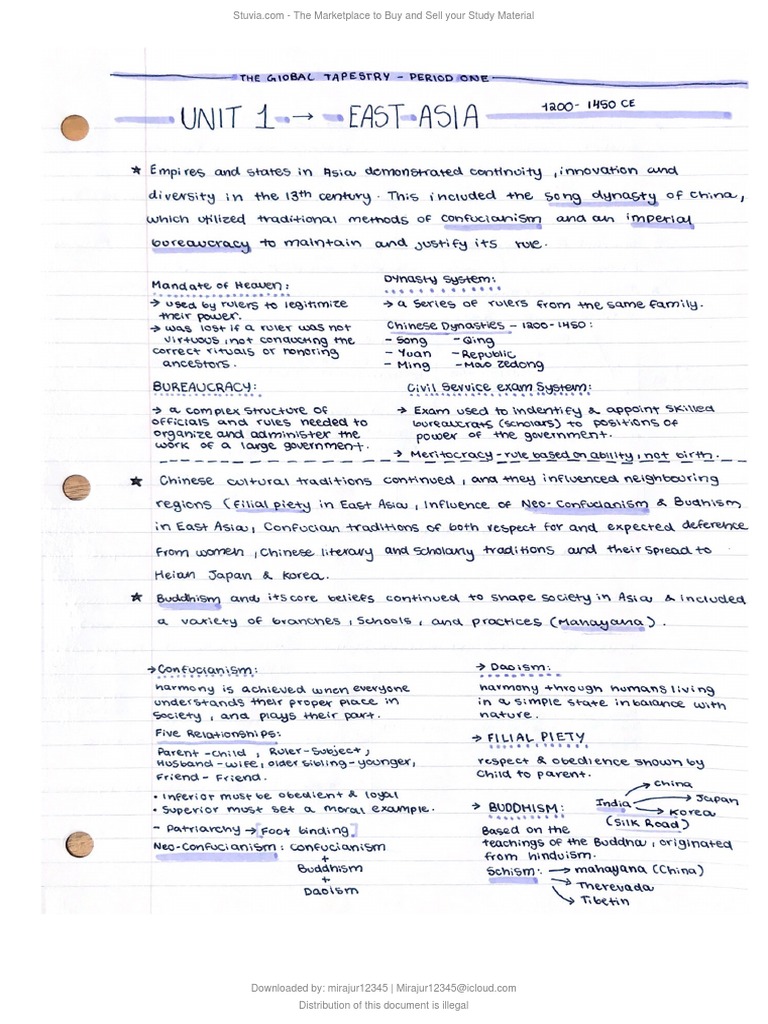 Stuvia.com - The Marketplace to Buy and Sell your Study Material
THE GlOBAL TAPESTRY - PERIOD ONE
UNIT 1 → EAST ASIA
1200- 1450 CE
★ Empires and states in Asia demonstrated continuity , innovation and
diversity in the 13th century. This included the song dynasty of China,
which utilized traditional methods of confucianism and an imperial
bureaucracy to maintain and justify its rule.
Mandate of Heaven:
→ used by rulers to legitimize
their power.
→ was lost if a ruler was not
virtuous, not conducting the
correct rituals or honoring
ancestors.
Dynasty System:
→ a series of rulers from the same family.
Chinese Dynasties - 1200-1450:
- Song - Qing
- Yuan - Republic
- Ming - Mao Zedong
BUREAUCRACY:
→ a complex structure of
officials and rules needed to
organize and administer the
work of a large government.
Civil Service exam System:
→ Exam used to indentify & appoint skilled
bureaucrats (scholars) to positions of
power of the government.
→ Meritocracy - rule based on ability, not birth.
★ Chinese cultural traditions continued, and they influenced neighbouring
regions (filial piety in East Asia, Influence of Neo-Confucianism & Budhism
in East Asia, Confucian traditions of both respect for and expected deference
from women , Chinese literary and scholarly traditions and their spread to
Heian Japan & Korea.
★ Buddhism and its core beliefs continued to shape society in Asia & included
a variety of branches, Schools, and practices (Mahayana).
→ Confucianism:
harmony is achieved when everyone
understands their proper place in
society, and plays their part.
Five Relationships:
Parent-Child, Ruler-Subject,
Husband-wife, older sibling-younger,
Friend-Friend.
• Inferior must be obedient & loyal
• Superior must set a moral example.
- Patriarchy → [Foot binding]
Neo-Confucianism: confucianism
+
Buddhism
+
Daoism
→ Daoism:
harmony through humans living
in a simple state in balance with
nature.
→ FILIAL PIETY
respect & obedience shown by
Child to parent.
→ BUDDHISM:
India → China
→ Japan
→ Korea
(Silk Road)
Based on the
teachings of the Buddha, originated
from hinduism.
Schism: → mahayana (China)
→ Therevada
→ Tibetin
Downloaded by: mirajur12345 | Mirajur12345@icloud.com
Distribution of this document is illegal